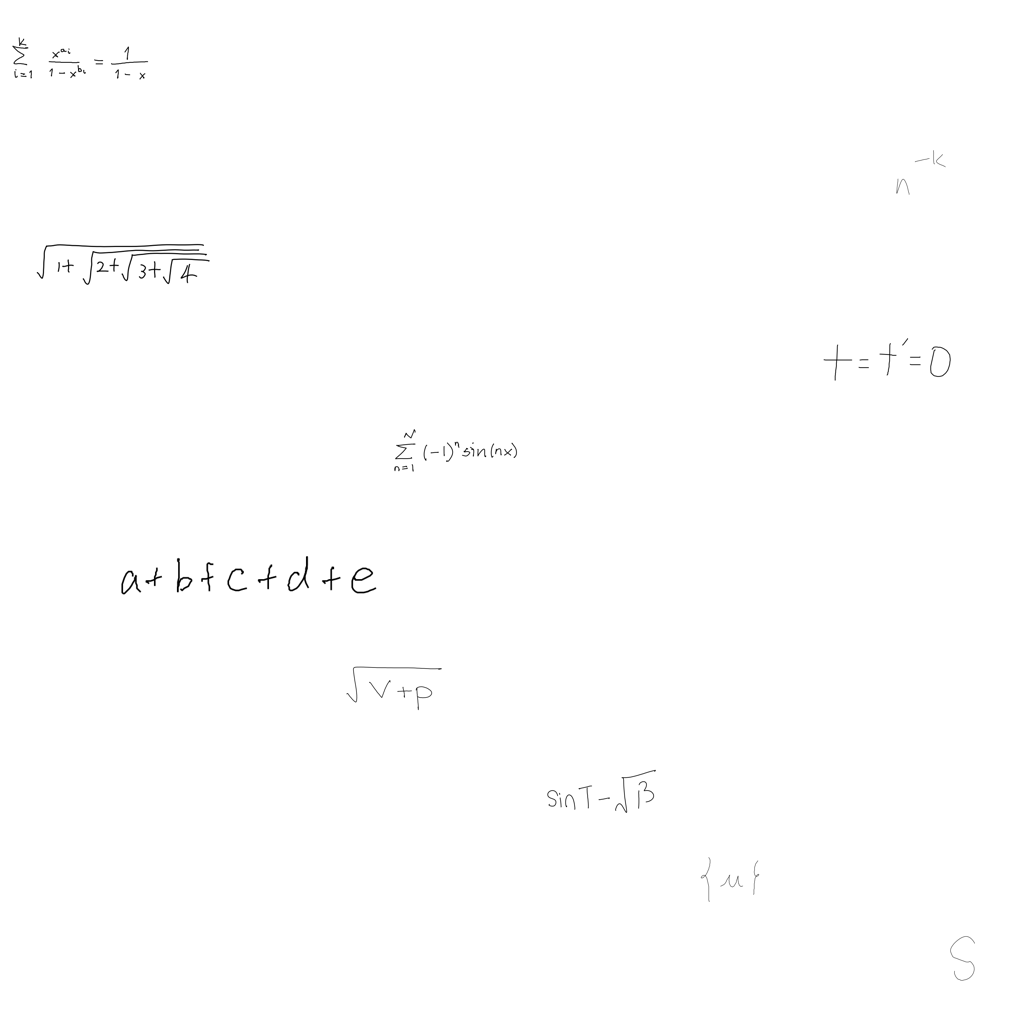 \sum_{i=1}^{k} \frac{x^{a_i}}{1-x^{b_i}} = \frac{1}{1-x}
n^{-k}
\sqrt{1+\sqrt{2+\sqrt{3+\sqrt{4}}}}
t=t'=0
\sum_{n=1}^{N} (-1)^n \sin(nx)
a+b+c+d+e
\sqrt{v+p}
\sin T-\sqrt{\beta}
\{u\}
S